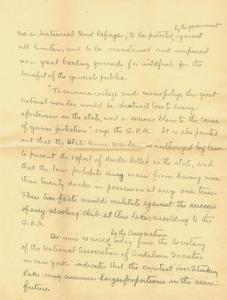 by the government
as a National Bird Refuge, to be protected against
all hunters, and to be maintained and improved
as a great breeding ground for wildfowl for the
benefit of the general public.
"To commercialize and monopolize this great
natural wonder would be distinct loss to every
sportsman in the state, and a serious blow to the cause
of game protection", says the G.P.A. It is also pointed
out that the State Game Warden is authorized by law
to prevent the export of ducks killed in the state, and
that the law prohibits any man from having more
than twenty ducks in possession at any one time.
These two facts would militate against the success
of any shooting club at this lake, according to the
G.P.A.
by the Association
As wire received today from the Secretary
of the National Association of Audubon Societies
in New York indicates that the contest over Stinking
Lake may assume larger proportions in the near
future.